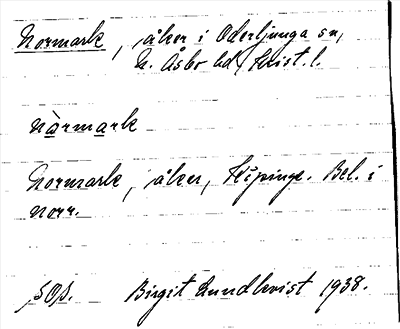 Normark, åker i Oderljunga sn,
N. Åsbo hd, Krist. l.
nòrmark
Normark, åker, Köpinge. Bel. i
norr.
Birgit Lundkvist 1938.